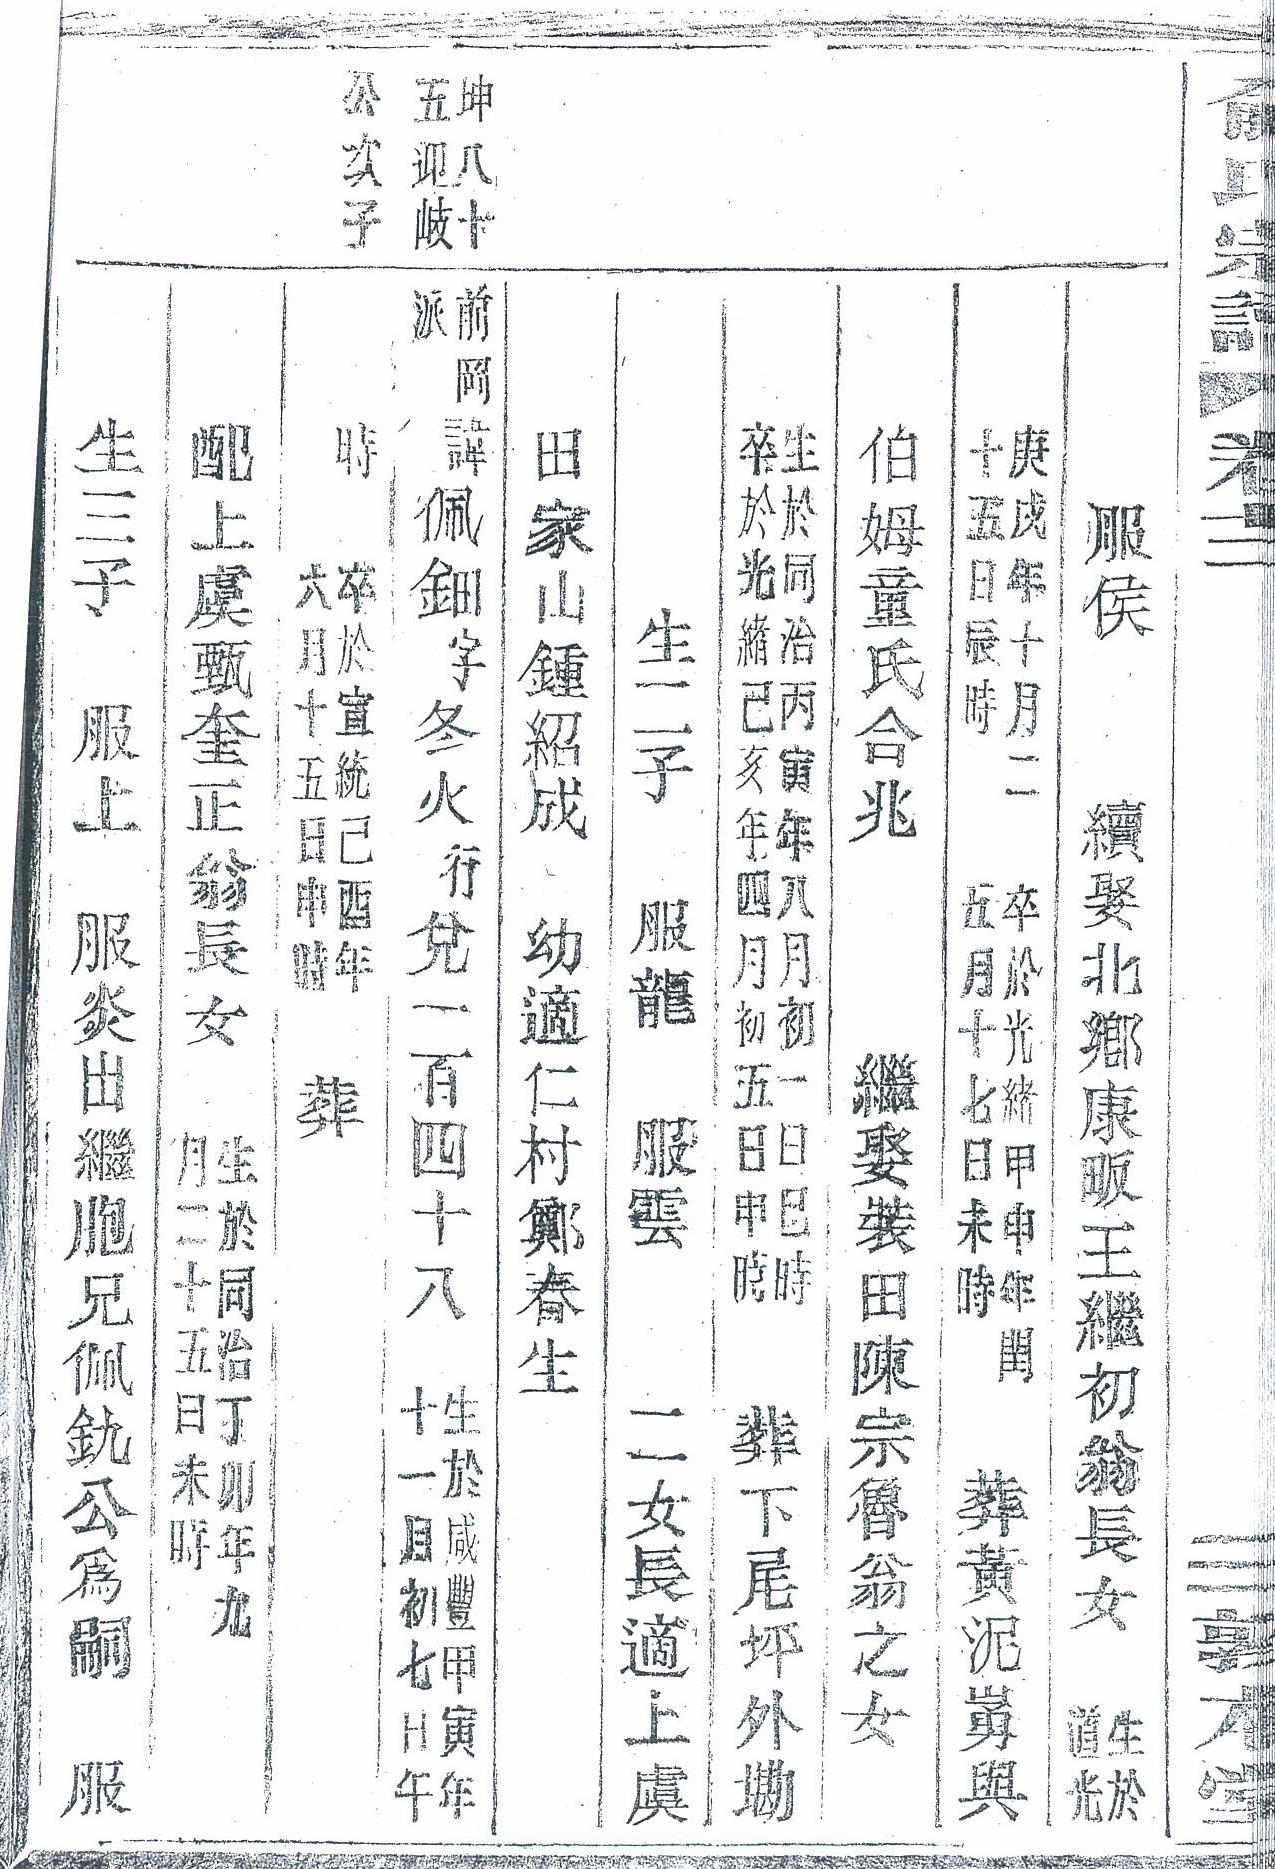 俞氏宗譜 卷三 敦本堂
服侯 續娶北鄉康畈王繼初翁長女 生於道光
庚戌年十月二十五日辰時 卒於光緒甲申年閏五月十七日未時 葬黃泥塆與
伯姆童氏合兆 繼娶裝田陳宗魯翁之女
生於同治丙寅年八月初一日巳時 卒於光緒己亥年四月初五日申時 葬下尾坪外塝
生二子 服龍 服雲 二女長適上虞
田家山鍾紹成 幼適仁村鄭春生
坤八十五迎歧公次子
前岡派 諱佩鈿字冬火行兌一百四十八 生於咸豐甲寅年十一月初七日午
時 卒於宣統己酉年六月十五日申時 葬
配上虞甄奎正翁長女 生於同治丁卯年九月二十五日未時
生三子 服上 服炎出繼胞兄佩釚公為嗣 服